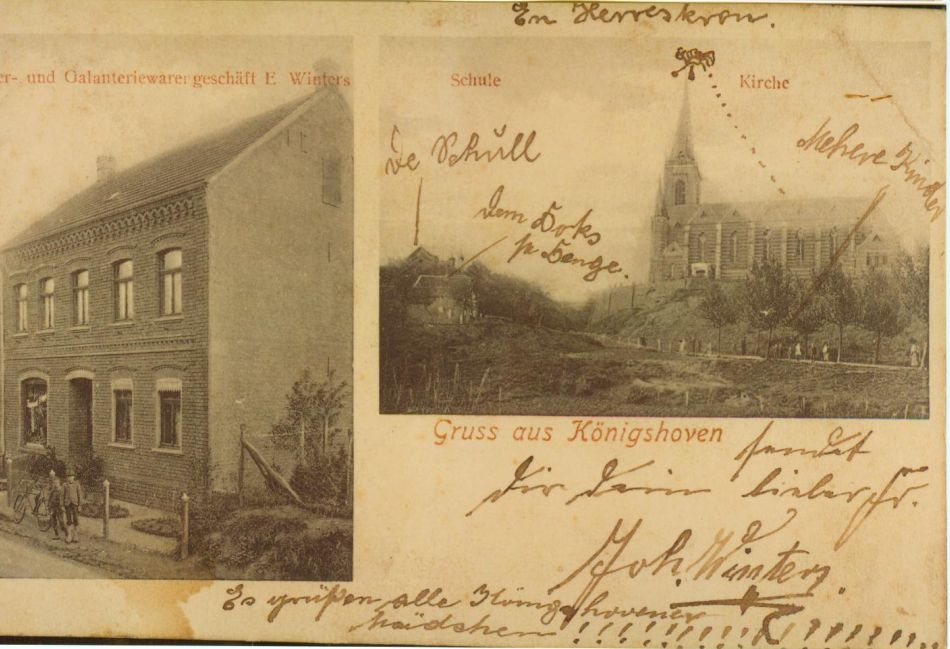 En Herreskron.
er-, und Galanteriewarengeschäft E Winters
Schule
Kirche
De Schüll
Mehere Kinder
dem
Gruss aus Königshoven
sendet
Dir dein lieber Fr.
Joh. Winters.
Es grüßen alle Königshovener
Mädchen !!!!!!!!!!!!!!